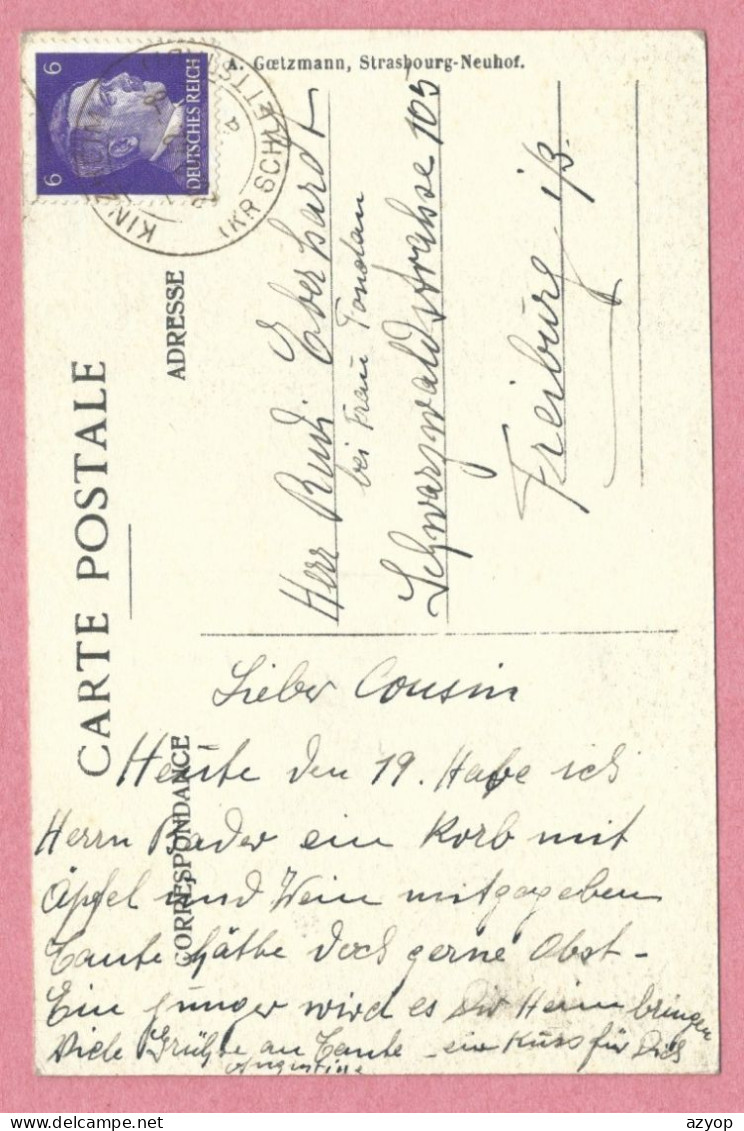 A. Gœtzmann, Strasbourg-Neuhof.
6 6
DEUTSCHES REICH
(KR SCHLETTSTADT)
a
CARTE POSTALE
ADRESSE
Herr Rudi Eberhardt
bei Frau
Schwarzwaldstrahse 105
Freiburg i/B.
CORRESPONDANCE
Lieber Cousin
Heute den 19. Habe ich
Herrn Bader ein Korb mit
Äpfel und Wein mitgegeben
Tante häthe doch gerne Obst-
Ein junger wird es Dir Heim bringen
Viele Grühse an Tante - ein Kuss für Dich
Augustine
azyop